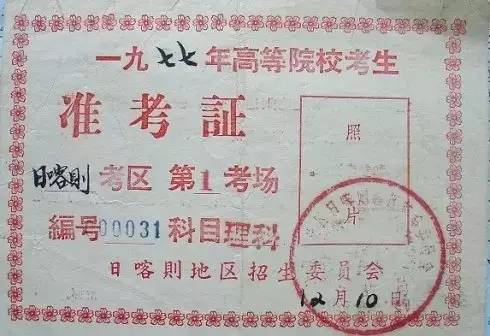 一九七七年高等院校考生
准考証
照
日喀則考区 第1考场
片
編号00031 科目理科
日喀則地区招生委員会
12月10日